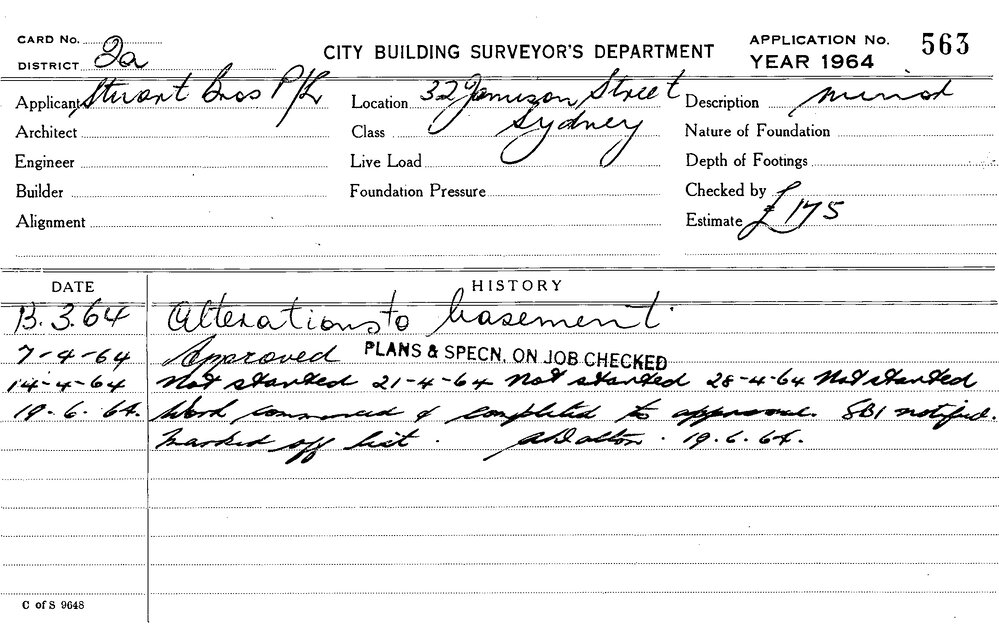 CARD No.
DISTRICT 2a
CITY BUILDING SURVEYOR'S DEPARTMENT
APPLICATION No. 563
YEAR 1964
Applicant Stuart Bros P/L
Location 32 Jamison Street
Sydney
Description minor
Architect
Class
Nature of Foundation
Engineer
Live Load
Depth of Footings
Builder
Foundation Pressure
Checked by
Alignment
Estimate £175
DATE HISTORY
13.3.64 Alterations to basement
7-4-64 Approved PLANS & SPECN. ON JOB CHECKED
14-4-64 Not started 21-4-64 Not started 28-4-64 Not started
19.6.64. Work commenced & completed to approval. SBI notified.
Marked off list. 19.6.64.
C of S 9648